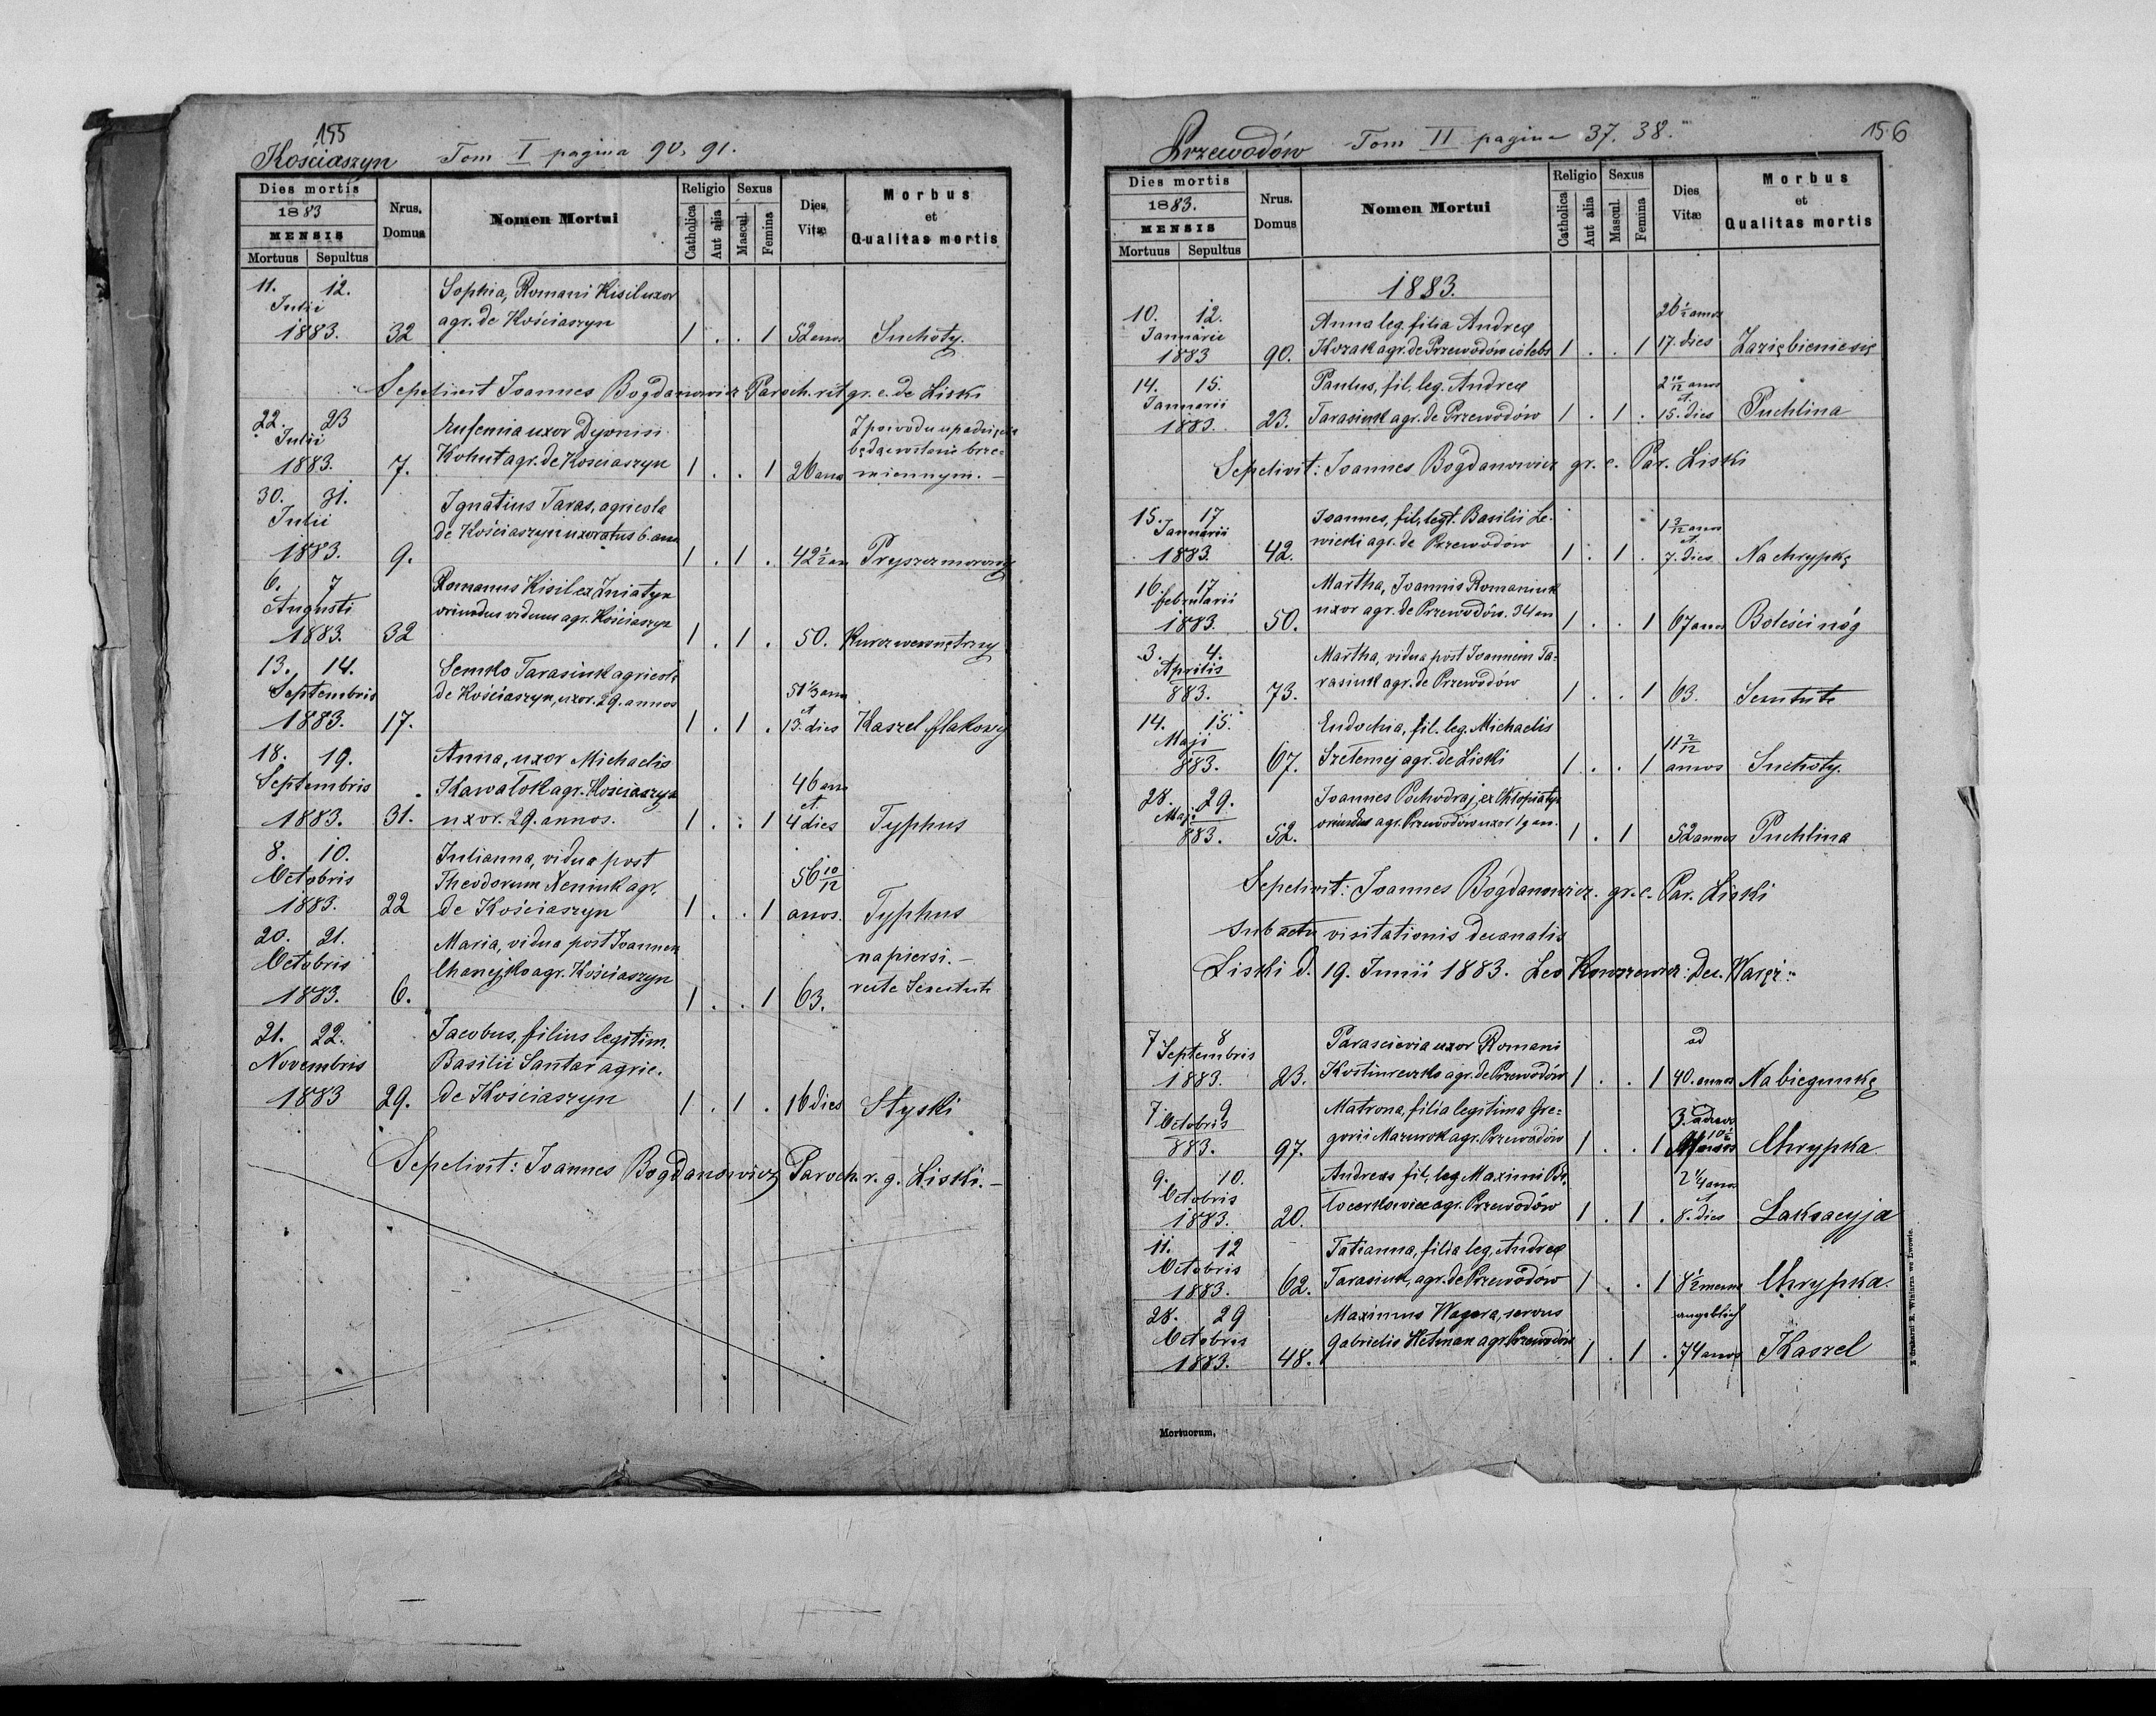 155
Kościaszyn Tom I pagina 90. 91.
Dies mortis
1883
MENSIS
Mortuus Sepultus
Nrus. Domus
Nomen Mortui
Religio
Catholica Aut alia
Sexus
Mascul. Femina
Dies Vitæ
Morbus et Qualitas mortis
11. 12.
Julii
1883. 32
Sophia, Romani Kisil uxor
agr. de Kościaszyn 1 . . 1 52 annos Suchoty.
Sepelivit Joannes Bogdanowicz Paroch. rit. gr. c. de Liski
22. 23
Julii
1883. 7.
Eufemia uxor Dyonisi
Kohut agr. de Kościaszyn 1 . . 1 26 anno
Z powodu
będąc w stanie brze=
miennym. –
30. 31.
Julii
1883. 9.
Ignatius Taras, agricola
de Kościaszyn uxoratus 6. ann
1 . 1 . 42 1/2 an
6. 7
Augusti
1883. 32
Romanus Kisil ex Zniatyn
oriundus viduus agr. Kościaszyn
1 . 1 . 50. Kurcz wewnętrzny
13. 14.
Septembris
1883. 17.
Semko Tarasiuk agricola
de Kościaszyn, uxor. 29. annos
1 . 1 . 51 1/3 ann
et
13. dies Kaszel flakowy
18. 19.
Septembris
1883. 31.
Anna, uxor Michaelis
Kawałok agr. Kościaszyn
uxor. 29. annos. 1 . . 1
46 ann
et
4 dies Typhus
8. 10.
Octobris
1883. 22
Julianna, vidua post
Theodorum Neniuk agr.
de Kościaszyn 1 . . 1
56 10/12
anos. Typhus
20. 21.
Octobris
1883. 6.
Maria, vidua post Joannem
Chanejko agr. Kościaszyn
1 . . 1 63.
na piersi. –
recte Senectute
21. 22.
Novembris
1883 29.
Jacobus, filius legitim.
Basilii Santar agric.
de Kościaszyn 1 . 1 . 16 dies Styski
Sepelivit: Joannes Bogdanowicz Paroch. r. g. Liski. –
Przewodów Tom II pagina 37. 38. 156
Dies mortis
1883.
MENSIS
Mortuus Sepultus
Nrus. Domus
Nomen Mortui
Religio
Catholica Aut alia
Sexus
Mascul. Femina
Dies Vitæ
Morbus et Qualitas mortis
1883.
10. 12.
Januarii
1883 90.
Anna leg. filia Andreæ
Kozak agr. de Przewodów
1 . . 1
26 1/2 annos
17. dies Zaziębienie się
14. 15.
Januarii
1883. 23.
Paulus, fil. leg. Andreæ
Tarasiuk agr. de Przewodów 1 . 1 .
2 10/12 annos
et.
15. dies Puchlina
Sepelivit: Joannes Bogdanowicz gr. c. Par. Liski
15. 17
Januarii
1883. 42.
Joannes, fil, legt. Basilii Le-
wicki agr. de Przewodów 1 . 1 .
1 3/12 anos
et
7. dies Na chrypkę
16. 17
februarii
1883. 50.
Martha, Joannis Romaniuk
uxor agr. de Przewodów. 34 an
1 . . 1 67 annos Boleści nóg
3. 4.
Aprilis
883. 73.
Martha, vidua post Joannem Ta=
rasiuk agr. de Przewodów 1 . . 1 63.
14. 15.
Maji
883. 67.
Eudochia, fil. leg. Michaelis
Szetemej agr. de Liski 1 . . 1
11 2/12
annos Suchoty.
28. 29.
Maji
883. 52.
Joannes Pochodraj, ex Chłopiatyn
oriundus agr. Przewodów uxor 19 an.
1 . 1 52 annos Puchlina
Sepelivit: Joannes Bogdanowicz. gr. c. Par. Liski
Sub actu visitationis decanalis
Liski d. 19. Junii 1883. Leo
7 8
Septembris
1883. 23.
Parascievia uxor Romani
agr. de Przewodów 1 . . 1
ad
40. annos Na biegunkę
7 9
Octobris
883. 97.
Matrona, filia legitima Gre=
gorii Mazurok agr. Przewodów 1 . . 1
3. Chrypka
9. 10.
Octobris
1883. 20.
Andreas fil. leg. Maximi
agr. Przewodów 1 . 1 .
2 1/4 anos
et
8. dies Laksacyja
11. 12
Octobris
1883. 62.
Tatianna, filia leg. Andreæ
Tarasiuk, agr. de Przewodów 1 . . 1 Chrypka.
28. 29
Octobris
1883. 48.
Maximus Wagera, servus
Gabrielis Hetman agr. Przewodów
1 . 1 .
angeblich
74 annos Kaszel
Mortuorum.
Z drukarni E. Winiarza we Lwowie.